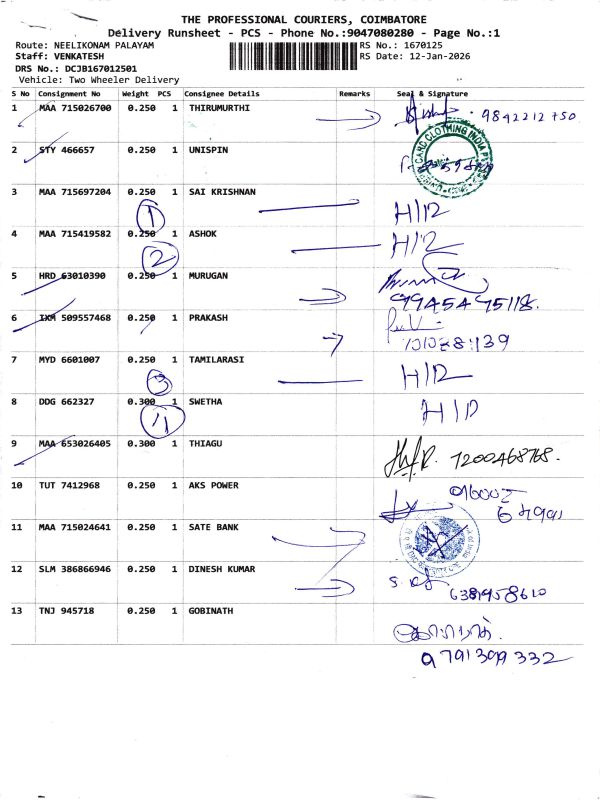 THE PROFESSIONAL COURIERS, COIMBATORE
Delivery Runsheet - PCS - Phone No.:9047080280 - Page No.:1
Route: NEELIKONAM PALAYAM RS No.: 1670125
Staff: VENKATESH RS Date: 12-Jan-2026
DRS No.: DCJB167012501
Vehicle: Two Wheeler Delivery
S No Consignment No Weight PCS Consignee Details Remarks Seal & Signature
1 MAA 715026700 0.250 1 THIRUMURTHI 9842212750
2 STY 466657 0.250 1 UNISPIN
CARD CLOTHING INDIA
3 MAA 715697204 0.250 1 SAI KRISHNAN H/D
1
4 MAA 715419582 0.250 1 ASHOK H/D
2
5 HRD 63010390 0.250 1 MURUGAN
9945495118.
6 IXM 509557468 0.250 1 PRAKASH
7 MYD 6601007 0.250 1 TAMILARASI H/D
3
8 DDG 662327 0.300 1 SWETHA H/D
4
9 MAA 653026405 0.300 1 THIAGU 7200468768.
10 TUT 7412968 0.250 1 AKS POWER
11 MAA 715024641 0.250 1 SATE BANK
12 SLM 386866946 0.250 1 DINESH KUMAR
13 TNJ 945718 0.250 1 GOBINATH
9791399332